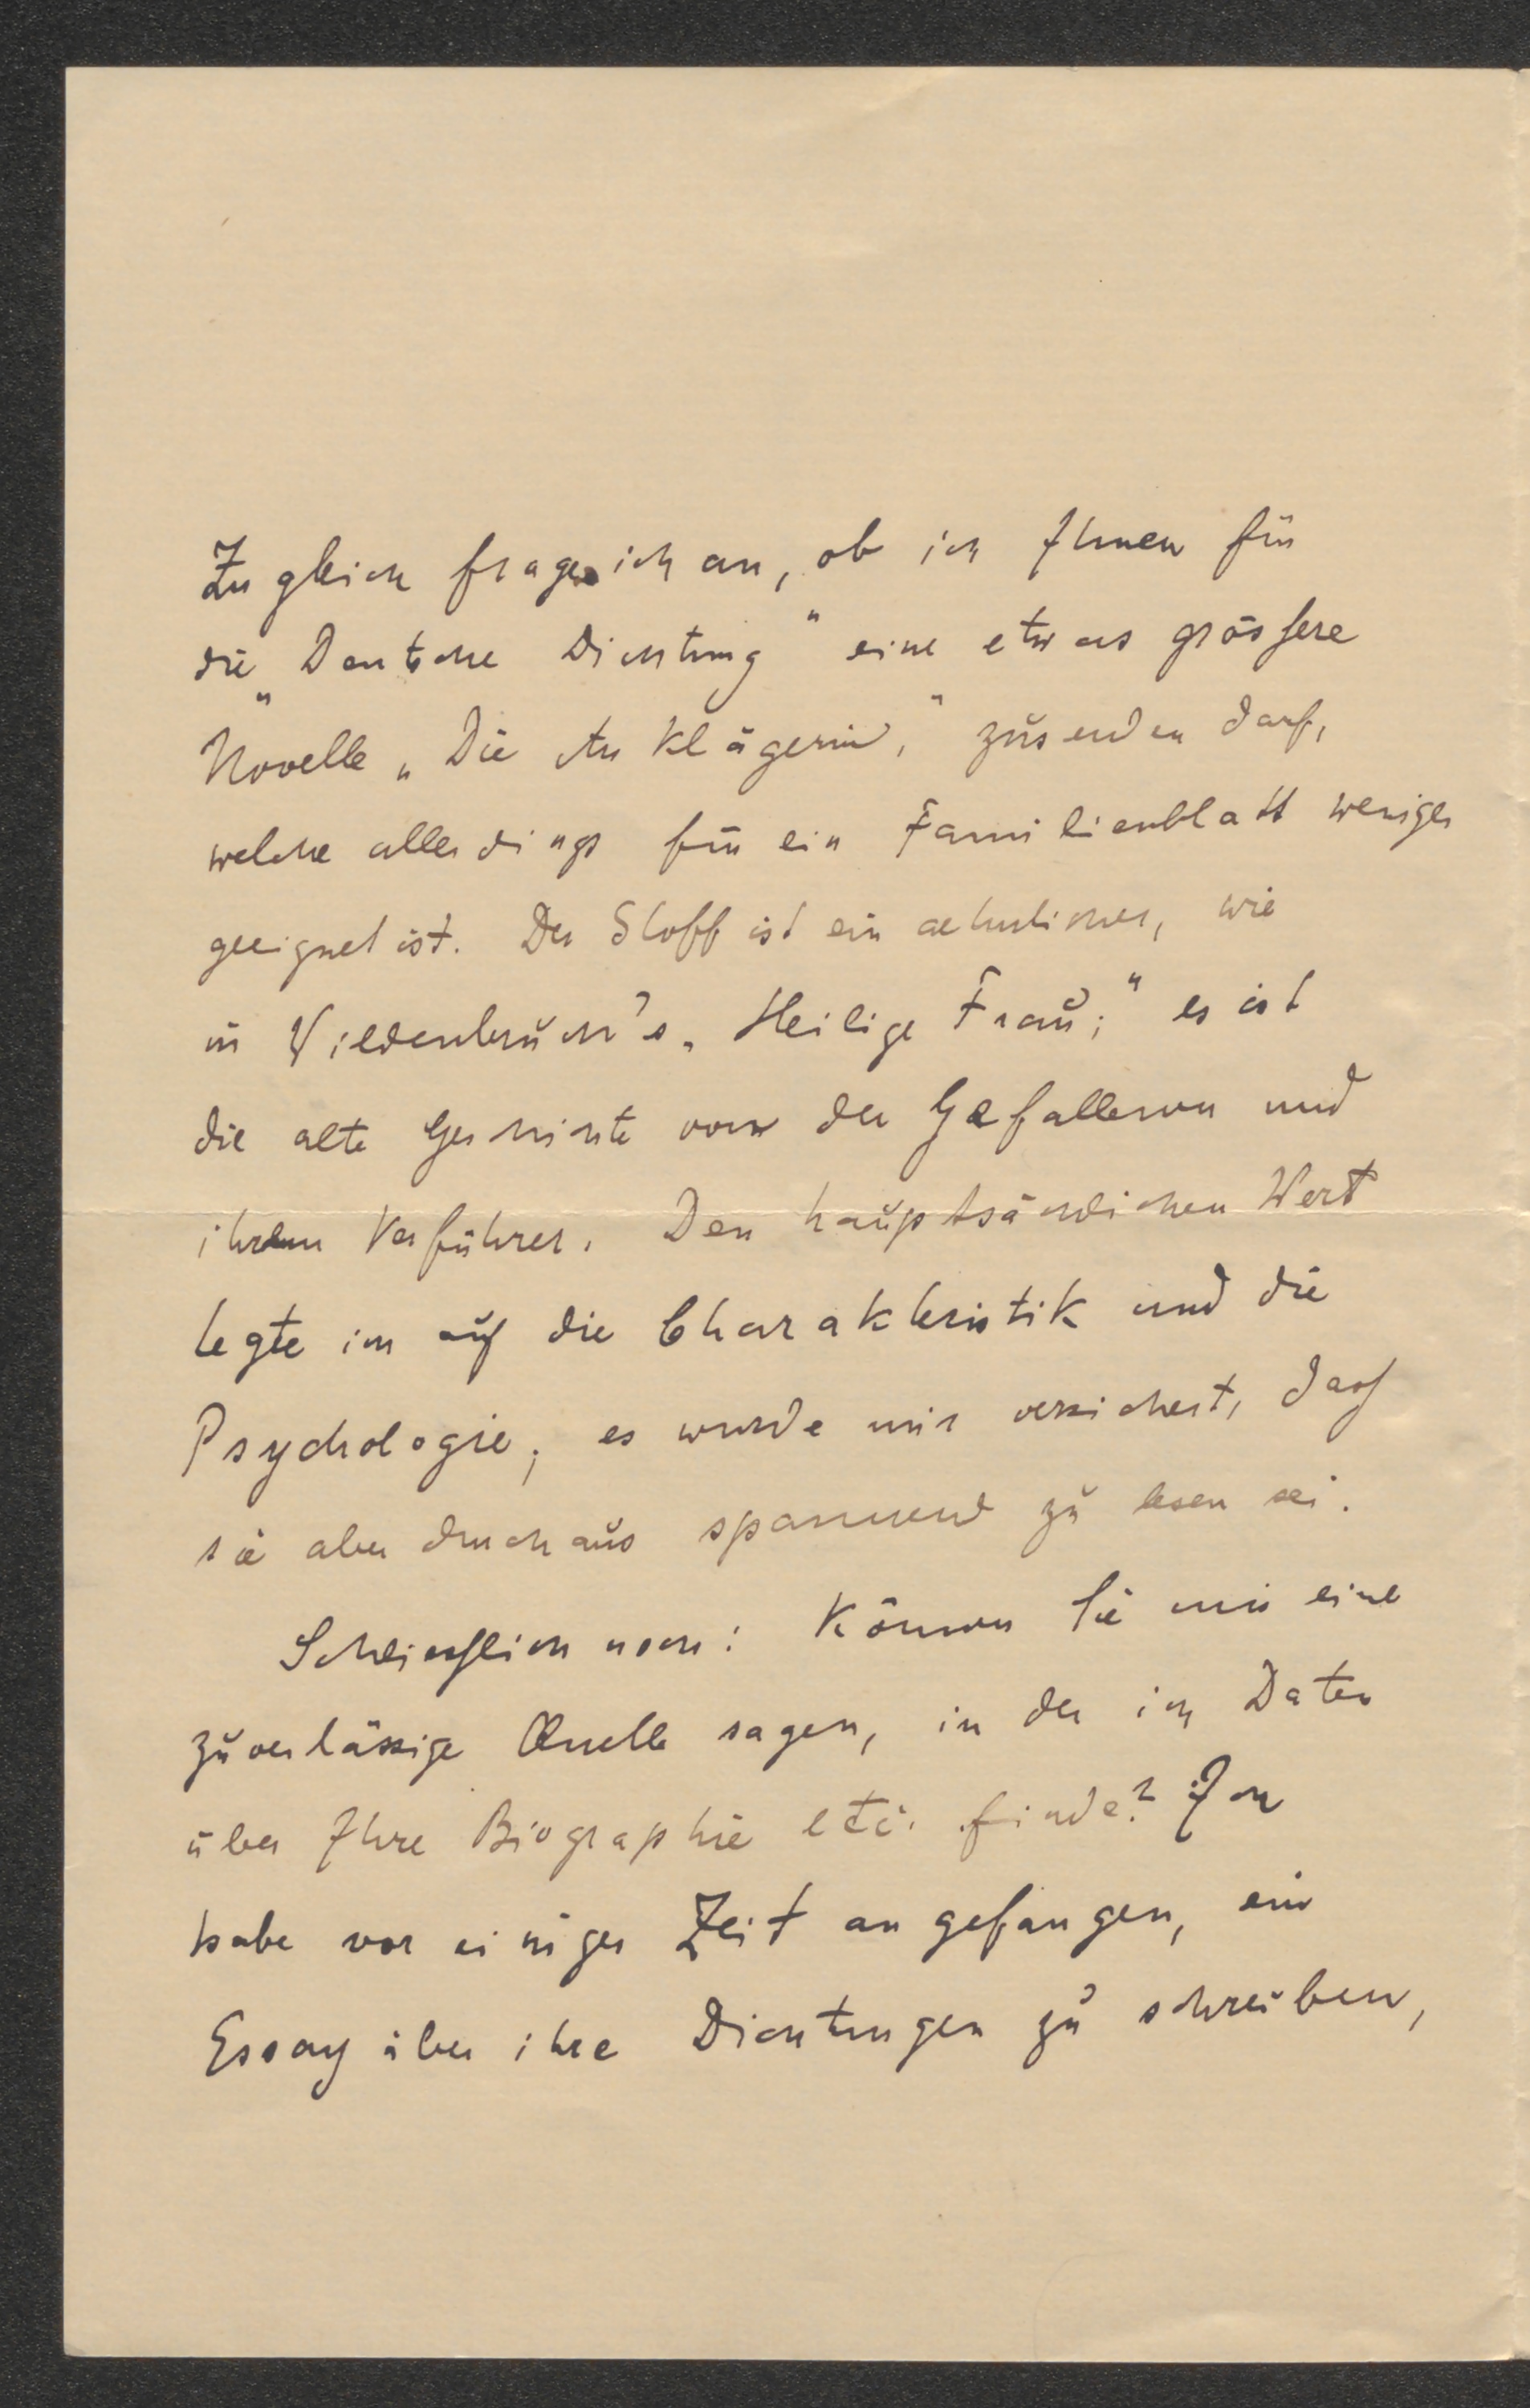 Zugleich frage ich an, ob ich Ihnen für
die „Deutsche Dichtung“ eine etwas grössere
Novelle „Die Anklägerin,“ zusenden darf,
welche allerdings für ein Familienblatt weniger
geeignet ist. Der Stoff ist ein aehnlicher, wie
in Wildenbruch's „Heilige Frau;“ es ist
die alte Geschichte von der Gefallenen und
ihrem Verführer. Den hauptsächlichen Wert
legte ich auf die Charakteristik und die
Psychologie; es wurde mir versichert, dass
sie aber durchaus spannend zu lesen sei.
Schliesslich noch: Können Sie mir eine
zuverlässige Quelle sagen, in der ich Daten
über Ihre Biographie etc. finde? Ich
habe vor einiger Zeit angefangen, ein
Essay über ihre Dichtungen zu schreiben,